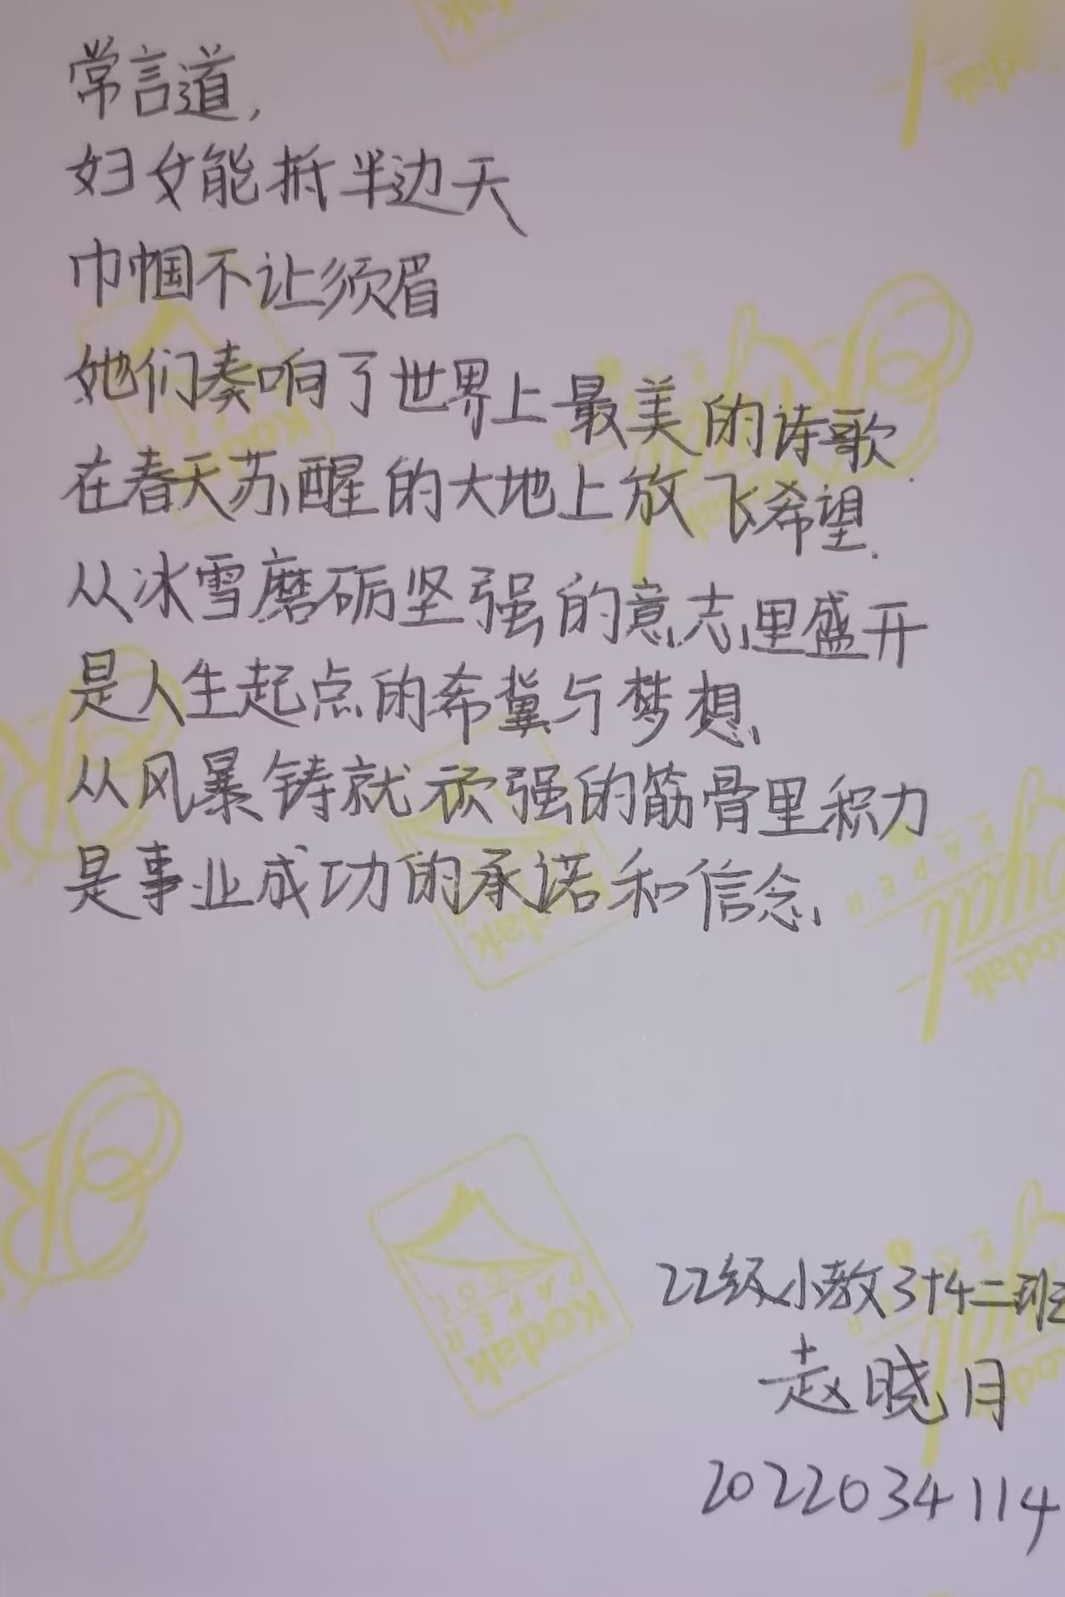 常言道,
妇女能抵半边天
巾帼不让须眉
她们奏响了世界上最美的诗歌
在春天苏醒的大地上放飞希望.
从冰雪磨砺坚强的意志里盛开
是人生起点的希冀与梦想、
从风暴铸就顽强的筋骨里积力
是事业成功的承诺和信念、
22级小教3+4二班
赵晓月
2022034114
Kodak
Kodak
Royal
PAPER
Kodak
Kodak
PAPER
Kodak